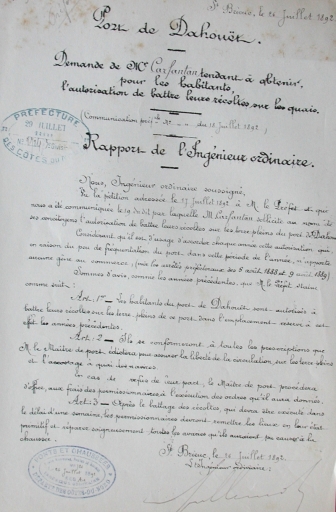 St Brieuc, le 26 Juillet 1892
Port de Dahouët.
Demande de Mr Carfantan tendant à obtenir
pour les habitants,
l'autorisation de battre leurs récoltes sur les quais.
(Communication préf. du 18 Juillet 1892)
PRÉFECTURE
29 JUILLET
DES CÔTES
Rapport de l'Ingénieur ordinaire.
Nous, Ingénieur ordinaire soussigné,
Vu la pétition adressée le 17 Juillet 1892 à M. le Préfet et qui
nous a été communiquée le 18 du dit par laquelle M. Carfantan sollicite au nom de
ses concitoyens l'autorisation de battre leurs récoltes sur les terre-pleins du port de Dahouët
Considérant qu'il est d'usage d'accorder chaque année cette autorisation qui
en raison du peu de fréquentation du port, dans cette période de l'année, n'apporte
aucune gêne au commerce, (voir les arrêtés préfectoraux des 8 août 1888 et 9 août 1889)
Sommes d'avis, comme les années précédentes, que M. le Préfet statue
comme suit:
Art. 1er - Les habitants du port de Dahouët sont autorisés à
battre leurs récoltes sur les terre-pleins de ce port, dans l'emplacement réservé à cet
effet les années précédentes.
Art. 2 - Ils se conformeront à toutes les prescriptions que
M. le Maître de port, édictera pour assurer la liberté de la circulation, sur les terre-pleins
et l'accostage à quai des navires.
En cas de refus de leur part, le Maître de port, procédera
d'office, aux frais des permissionnaires à l'exécution des ordres qu'il aura donnés.
Art. 3 - Après le battage des récoltes, qui devra être exécuté dans
le délai d'une semaine, les permissionnaires devront remettre les lieux en leur état
primitif et réparer soigneusement toutes les avaries qu'ils auraient pu causer à la
chaussée.
St Brieuc, le 26 Juillet 1892
L'Ingénieur ordinaire:
PONTS ET CHAUSSÉES
Juillet 1892
DÉPARTEMENT DES CÔTES-DU-NORD